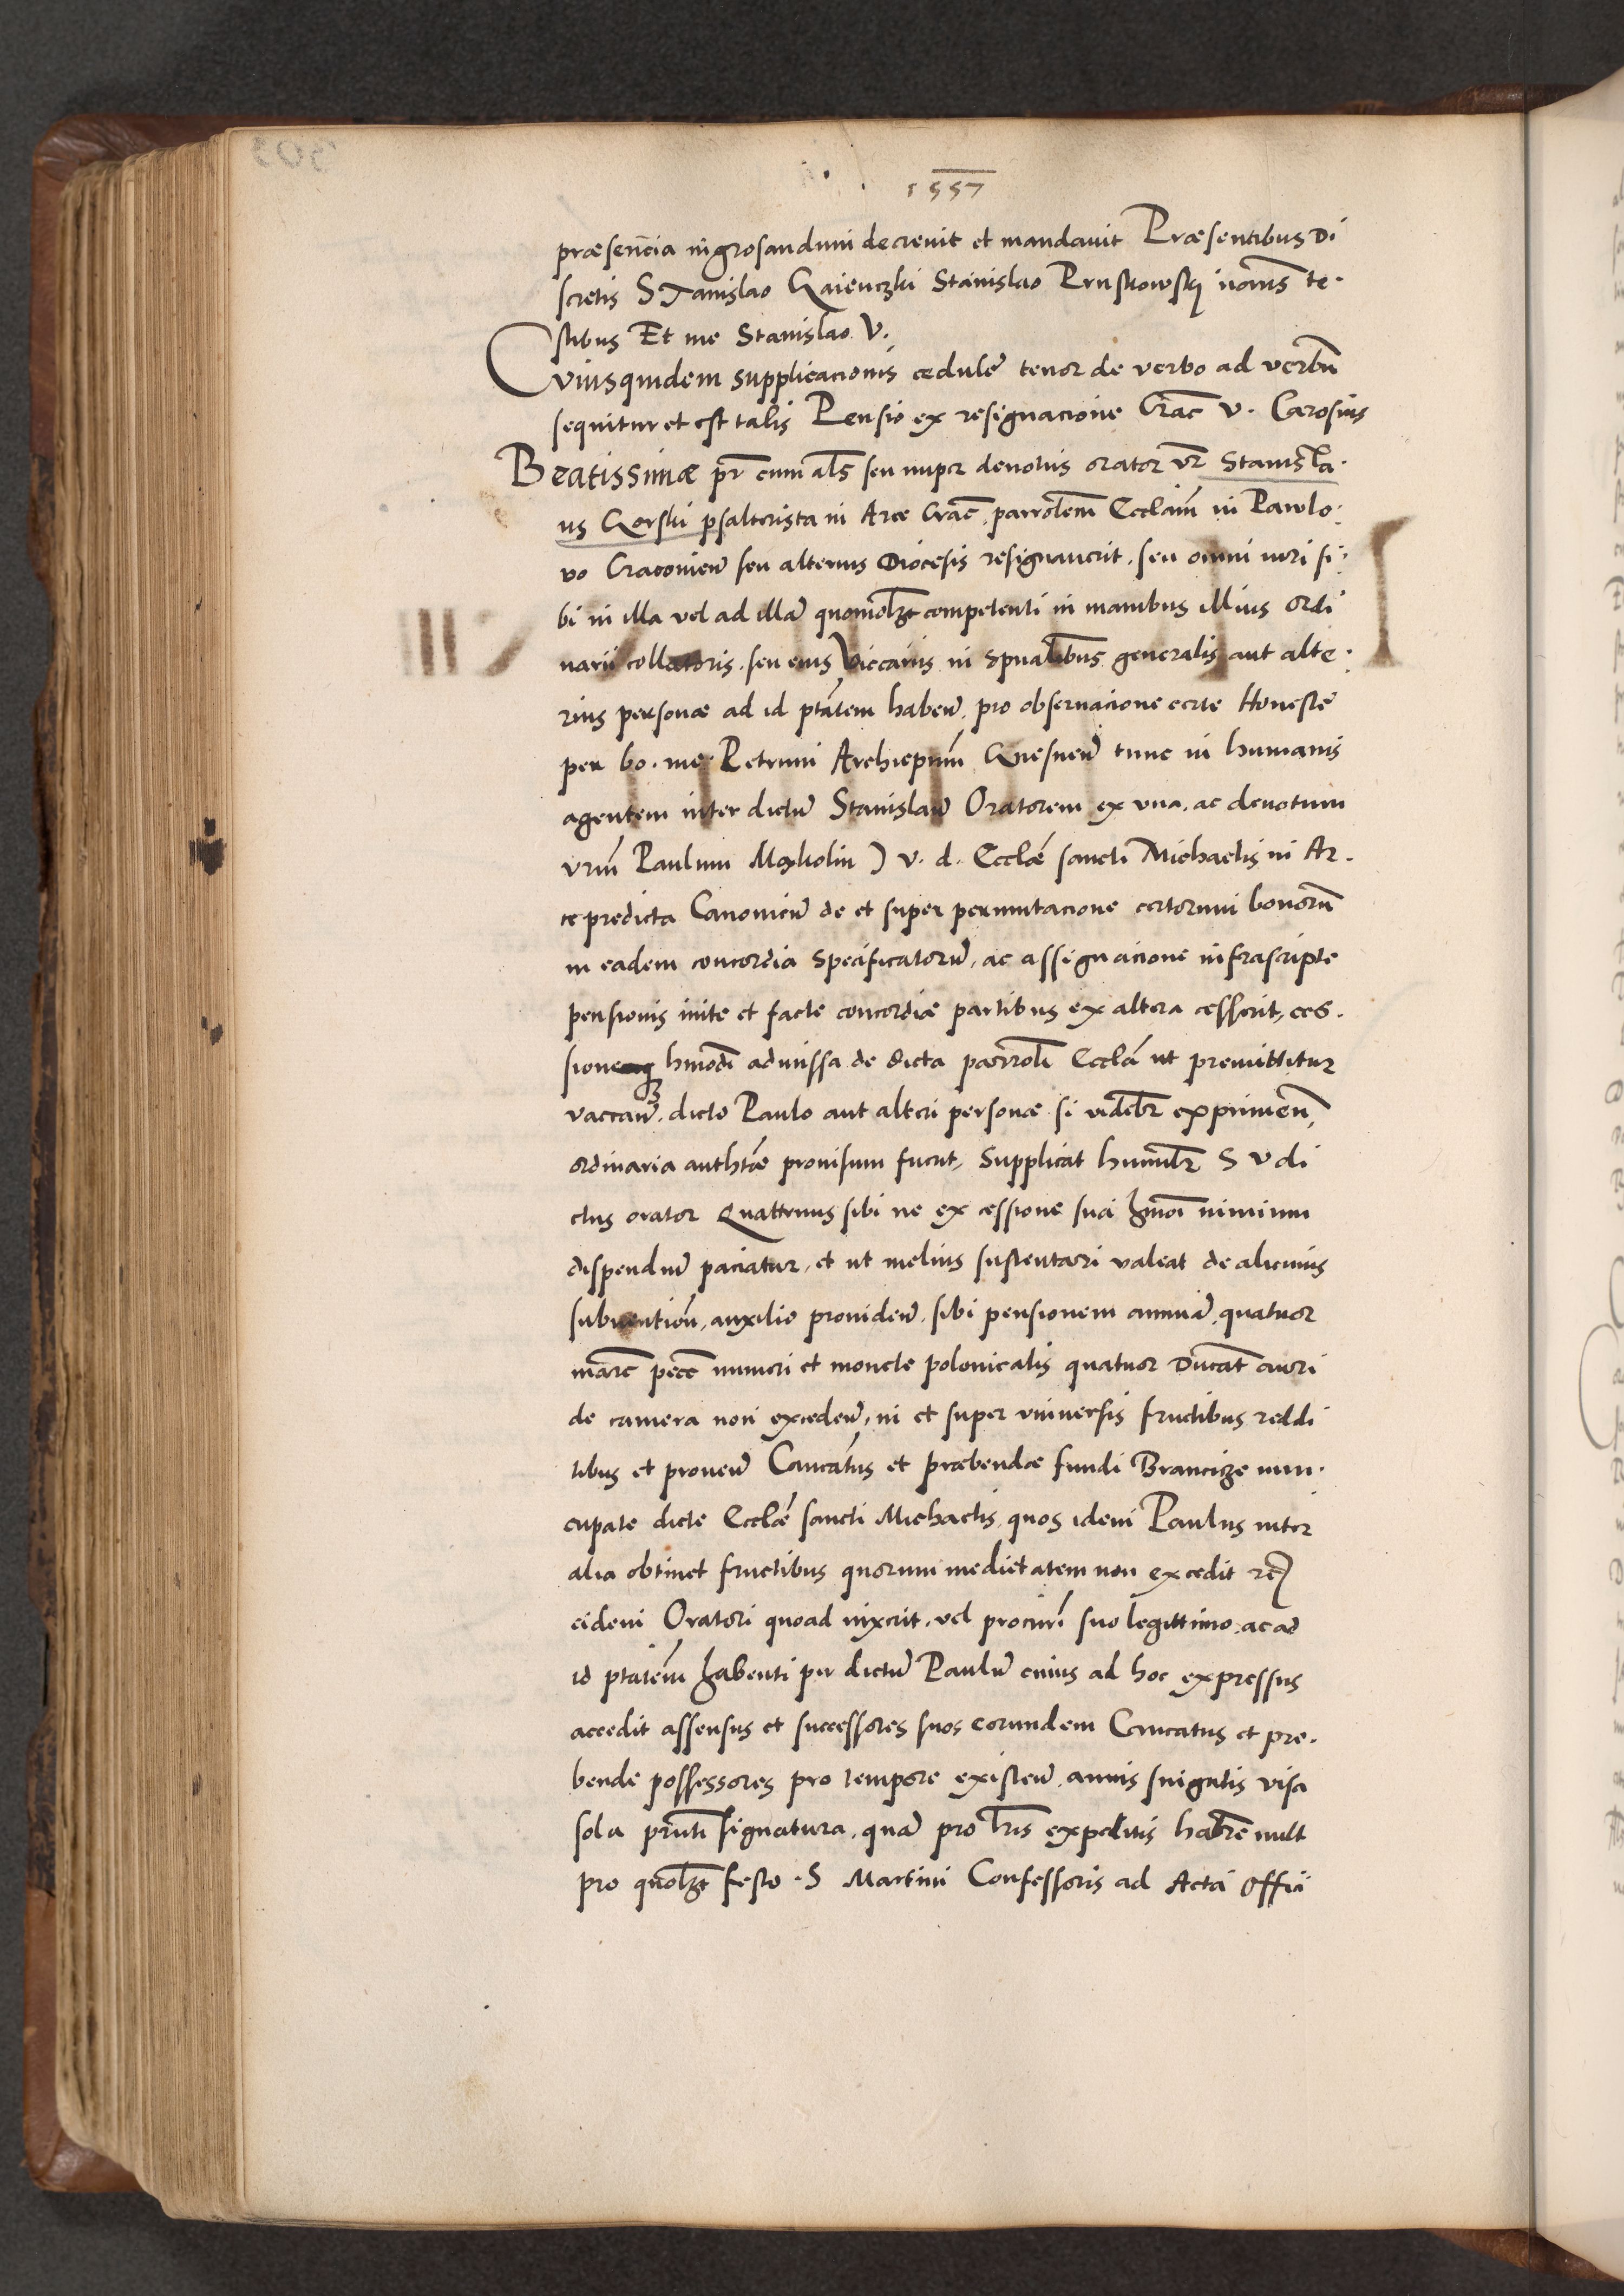 1557
præsencia ingrosandum decrevit et mandavit Præsentibus Di
scretis Stanislao Gaienczki Stanislao Pruskowski notariis te·
stibus Et me Stanislao V.
Cuiusquidem supplicacionis cedule tenor de verbo ad verbu
sequitur et est talis Pensio ex resignacione Crac V. Carosius
Beatissimæ pr cum als seu nuper devotus orator vr Stanisla·
us Gorski psalterista in Arce Crac, parrolem Ecclam in Pawlo·
vo Cracovien seu alterius Diocesis resignaverit. seu omni iuri si·
bi in illa vel ad illa quomolzt competenti in manibus illius ordi
narii collatoris. seu eius Viccarius in spualibus generalis aut alte·
rius personæ ad id ptatem haben. pro observacione certe Honeste
per bo. me. Petrum Archiepum Gnesnen tunc in humanis
agentem inter dictu Stanislau Oratorem ex vna. ac devotum
vrm Paulum J V. d. Ecclæ sancti Michaelis in Ar·
ce predicta Canonicu de et super permutacione certorum bonoru
in eadem concordia specificatoru, ac assignacione infrascripte
pensionis inite et facte concordiæ partibus ex altera cesserit, ces·
sione hmodi admissa de dicta parroli Eccla ut premittitur
vaccan. dicto Paulo aut alteri personæ si videbr exprimen,
ordinaria authtæ provisum fuerit, Supplicat humilr S V di
ctus orator Quattenus sibi ne ex cessione sua hmoi nimium
dispendiu paciatur, et ut melius sustentari valeat de alicuius
subvention, auxilio providen. sibi pensionem annua, quatuor
marc pece numeri et monete polonicalis quatuor Ducat auri
de camera non exceden, in et super vniversis fructibus reddi
tibus et proven Cancatus et præbendæ fundi Brancize nun·
cupate dicte Ecclæ sancti Michaelis, quos idem Paulus inter
alia obtinet fructibus quorum medietatem non excedit re
eidem Oratori quoad vixerit, vel procuri suo legittimo, ac ad
id ptatem habenti per dictu Paulu cuius ad hoc expressus
accedit assensus et successores suos eorundem Cancatus et pre·
bende possessores pro tempore existen, annis singulis visa
sola pnti signatura, qua pro lris expeditis habre vult
pro quolzt festo. S Martini Confessoris ad Acta Offici